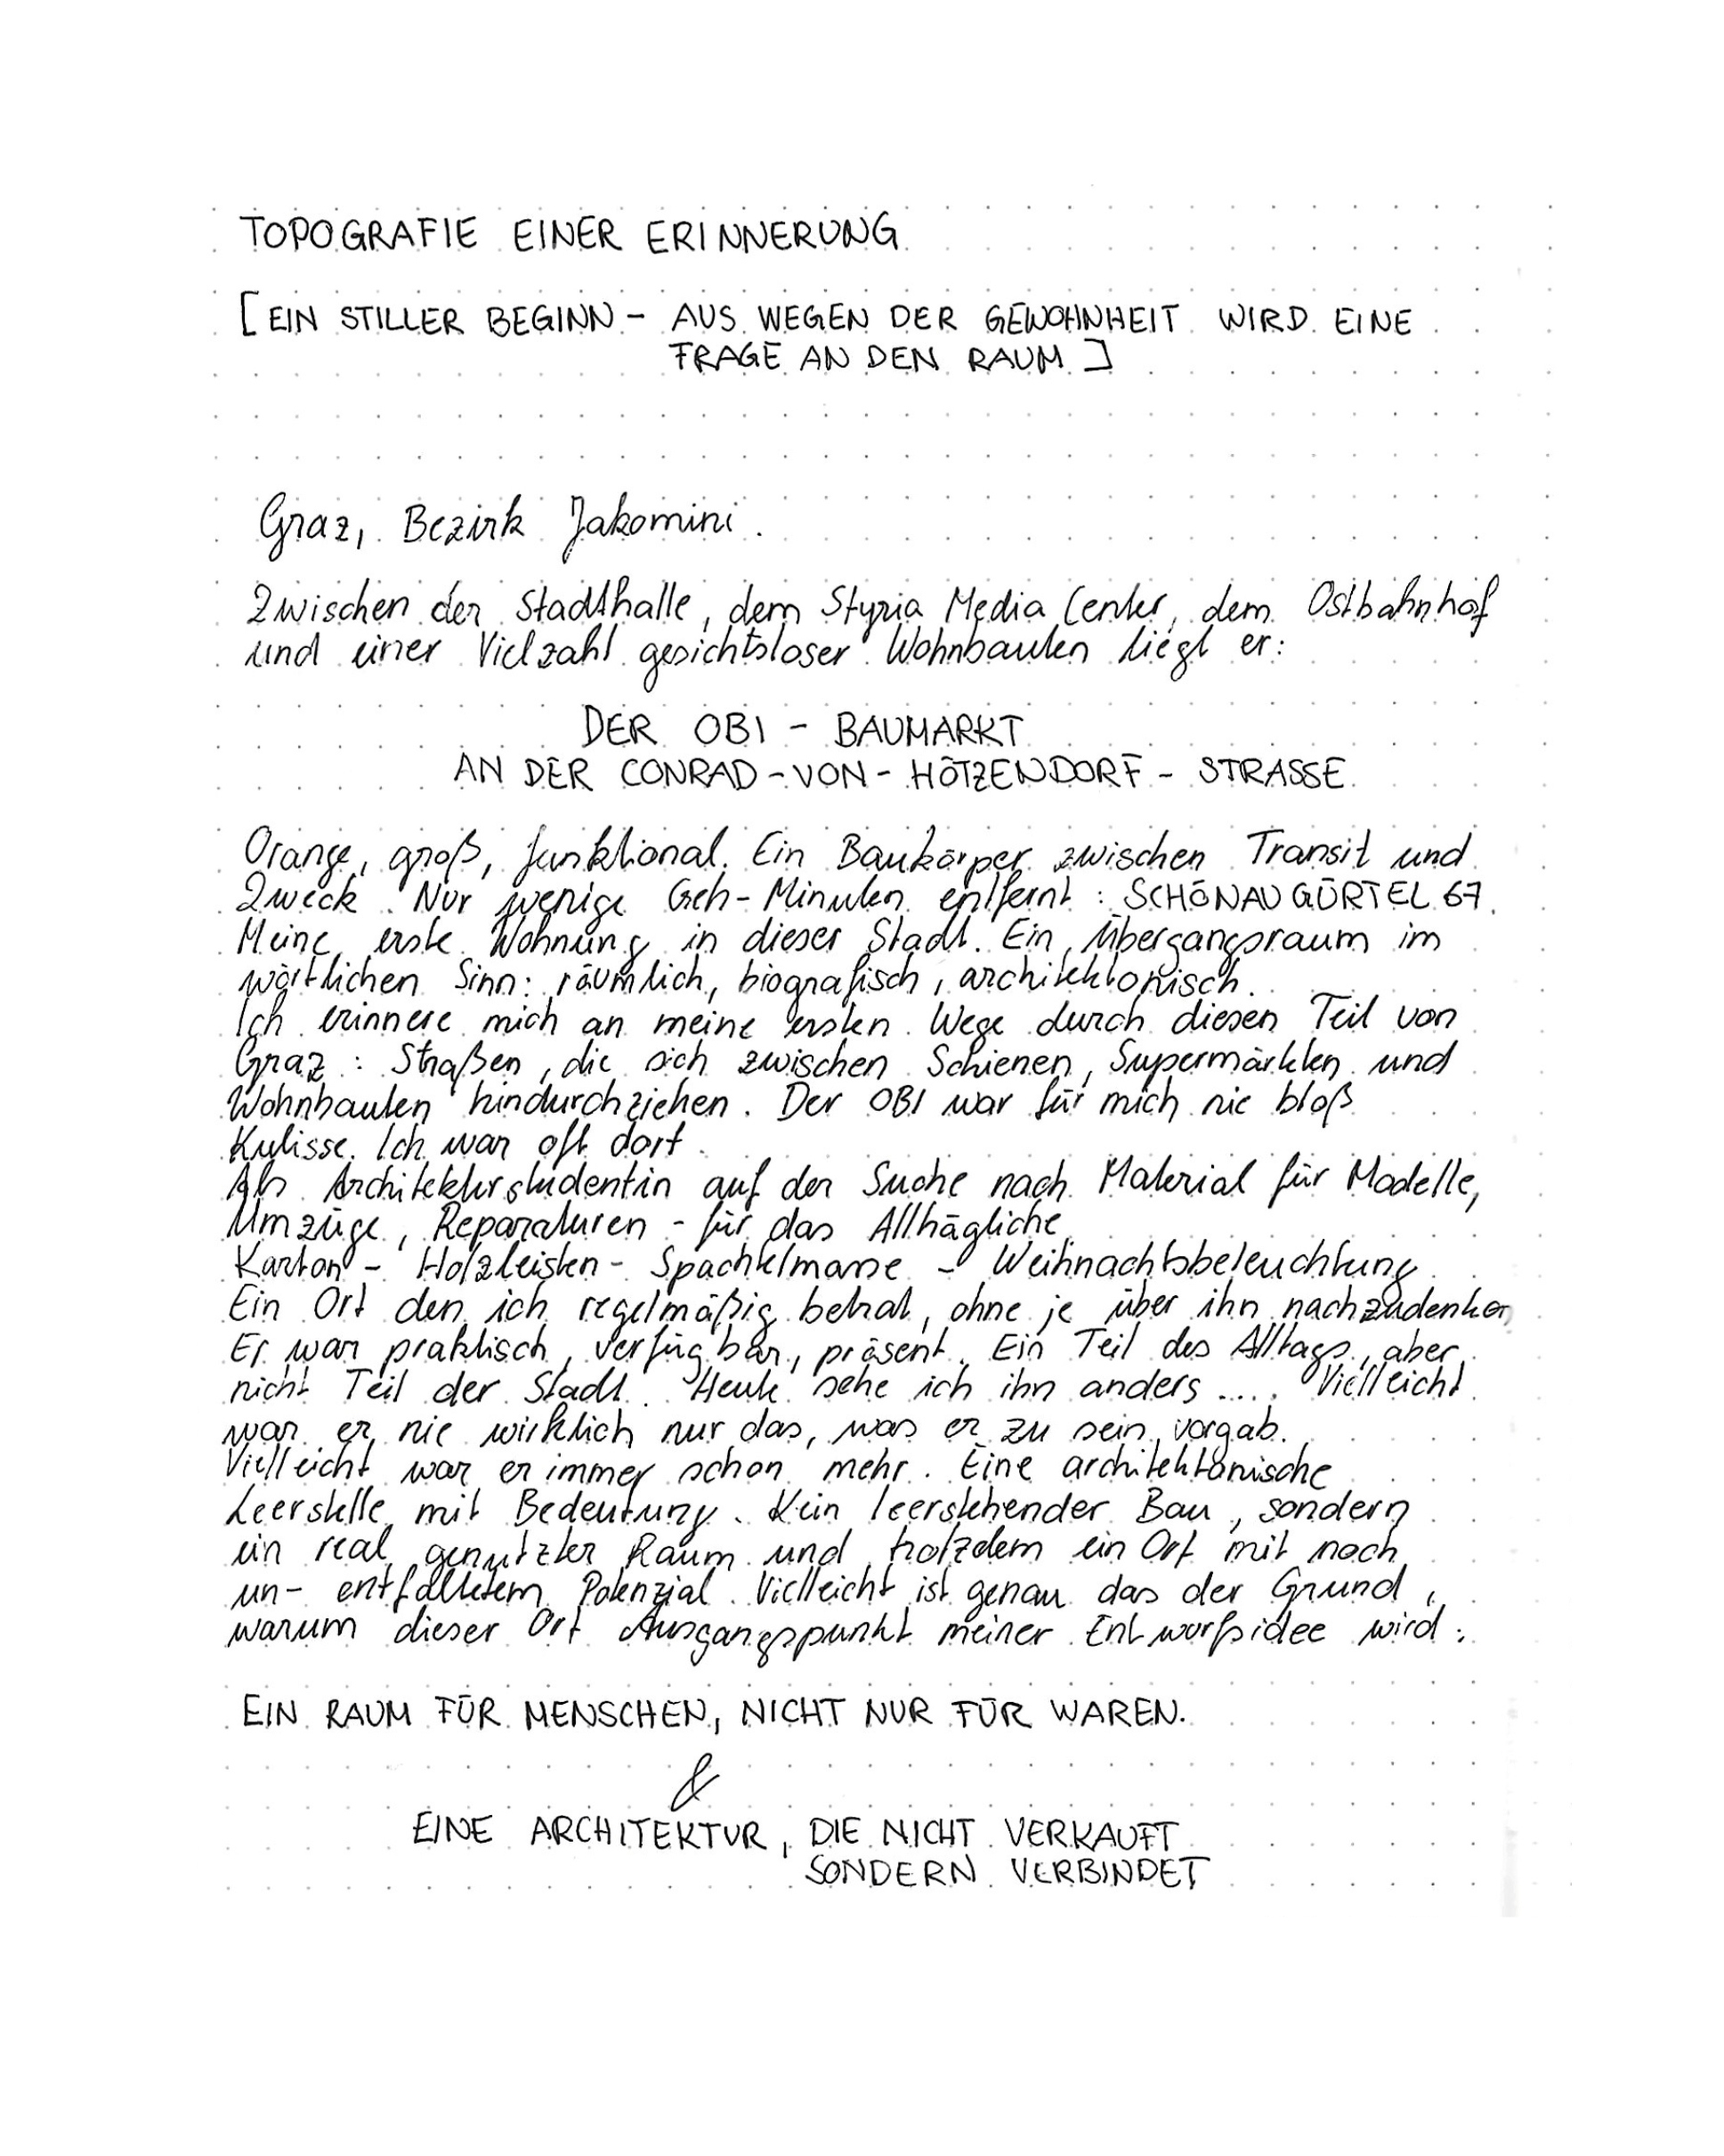 TOPOGRAFIE EINER ERINNERUNG
[EIN STILLER BEGINN - AUS WEGEN DER GEWOHNHEIT WIRD EINE
FRAGE AN DEN RAUM]
Graz, Bezirk Jakomini.
Zwischen der Stadthalle, dem Styria Media Center, dem Ostbahnhof
und einer Vielzahl gesichtsloser Wohnbauten liegt er:
DER OBI - BAUMARKT
AN DER CONRAD-VON-HÖTZENDORF-STRASSE.
Orange, groß, funktional. Ein Baukörper zwischen Transit und
Zweck. Nur wenige Geh-Minuten entfernt: SCHÖNAUGÜRTEL 67.
Meine erste Wohnung in dieser Stadt. Ein Übergangsraum im
wörtlichen Sinn: räumlich, biografisch, architektonisch.
Ich erinnere mich an meine ersten Wege durch diesen Teil von
Graz: Straßen, die sich zwischen Schienen, Supermärkten und
Wohnbauten hindurchziehen. Der OBI war für mich nie bloß
Kulisse. Ich war oft dort.
Als Architekturstudentin auf der Suche nach Material für Modelle,
Umzüge, Reparaturen - für das Alltägliche.
Karton - Holzleisten - Spachtelmasse - Weihnachtsbeleuchtung.
Ein Ort den ich regelmäßig betrat, ohne je über ihn nachzudenken
Er war praktisch, verfügbar, präsent. Ein Teil des Alltags, aber
nicht Teil der Stadt. Heute sehe ich ihn anders .... Vielleicht
war er nie wirklich nur das, was er zu sein vorgab.
Vielleicht war er immer schon mehr. Eine architektonische
Leerstelle mit Bedeutung. Kein leerstehender Bau, sondern
ein real genutzter Raum und trotzdem ein Ort mit noch
un- entfaltetem Potenzial. Vielleicht ist genau das der Grund,
warum dieser Ort Ausgangspunkt meiner Entwurfsidee wird:
EIN RAUM FÜR MENSCHEN, NICHT NUR FÜR WAREN.
&
EINE ARCHITEKTUR, DIE NICHT VERKAUFT
SONDERN VERBINDET